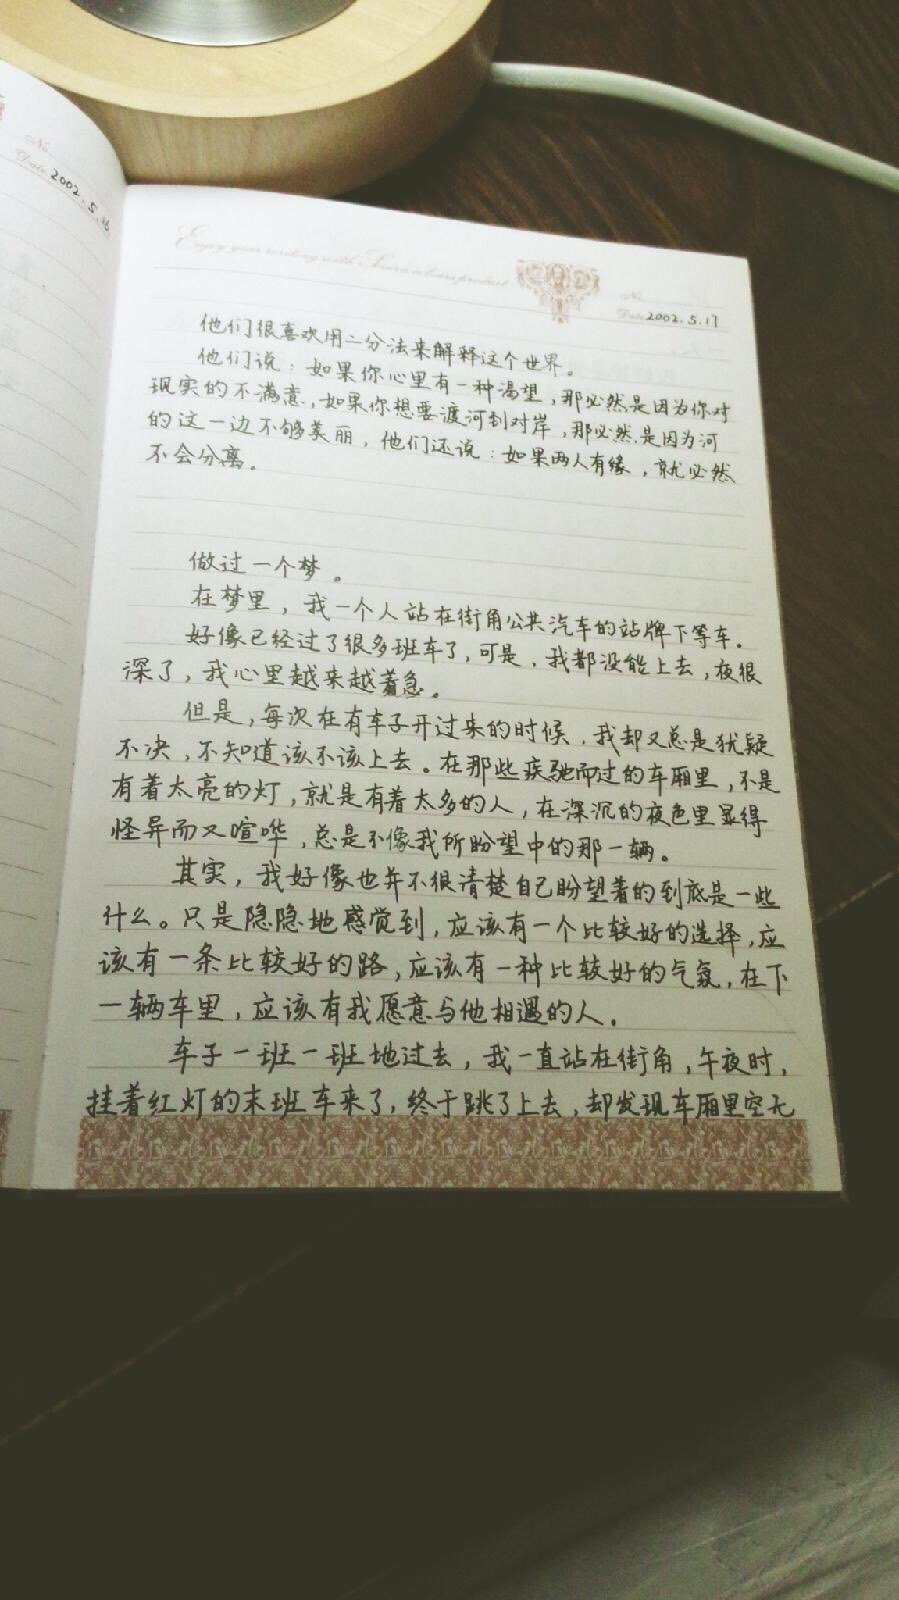 No
Date 2002.5.16
Enjoy your writing with
No
Date 2002.5.17
他们很喜欢用二分法来解释这个世界。
他们说：如果你心里有一种渴望，那必然是因为你对
现实的不满意，如果你想要渡河到对岸，那必然是因为河
的这一边不够美丽，他们还说：如果两人有缘，就必然
不会分离。
做过一个梦。
在梦里，我一个人站在街角公共汽车的站牌下等车.
好像已经过了很多班车了，可是，我都没能上去，夜很
深了，我心里越来越着急。
但是，每次在有车子开过来的时候，我却又总是犹疑
不决，不知道该不该上去。在那些疾驰而过的车厢里，不是
有着太亮的灯，就是有着太多的人，在深沉的夜色里显得
怪异而又喧哗，总是不像我所盼望中的那一辆。
其实，我好像也并不很清楚自己盼望着的到底是一些
什么。只是隐隐地感觉到，应该有一个比较好的选择，应
该有一条比较好的路，应该有一种比较好的气氛，在下
一辆车里，应该有我愿意与他相遇的人.
车子一班一班地过去，我一直站在街角，午夜时，
挂着红灯的末班车来了，终于跳了上去，却发现车厢里空无